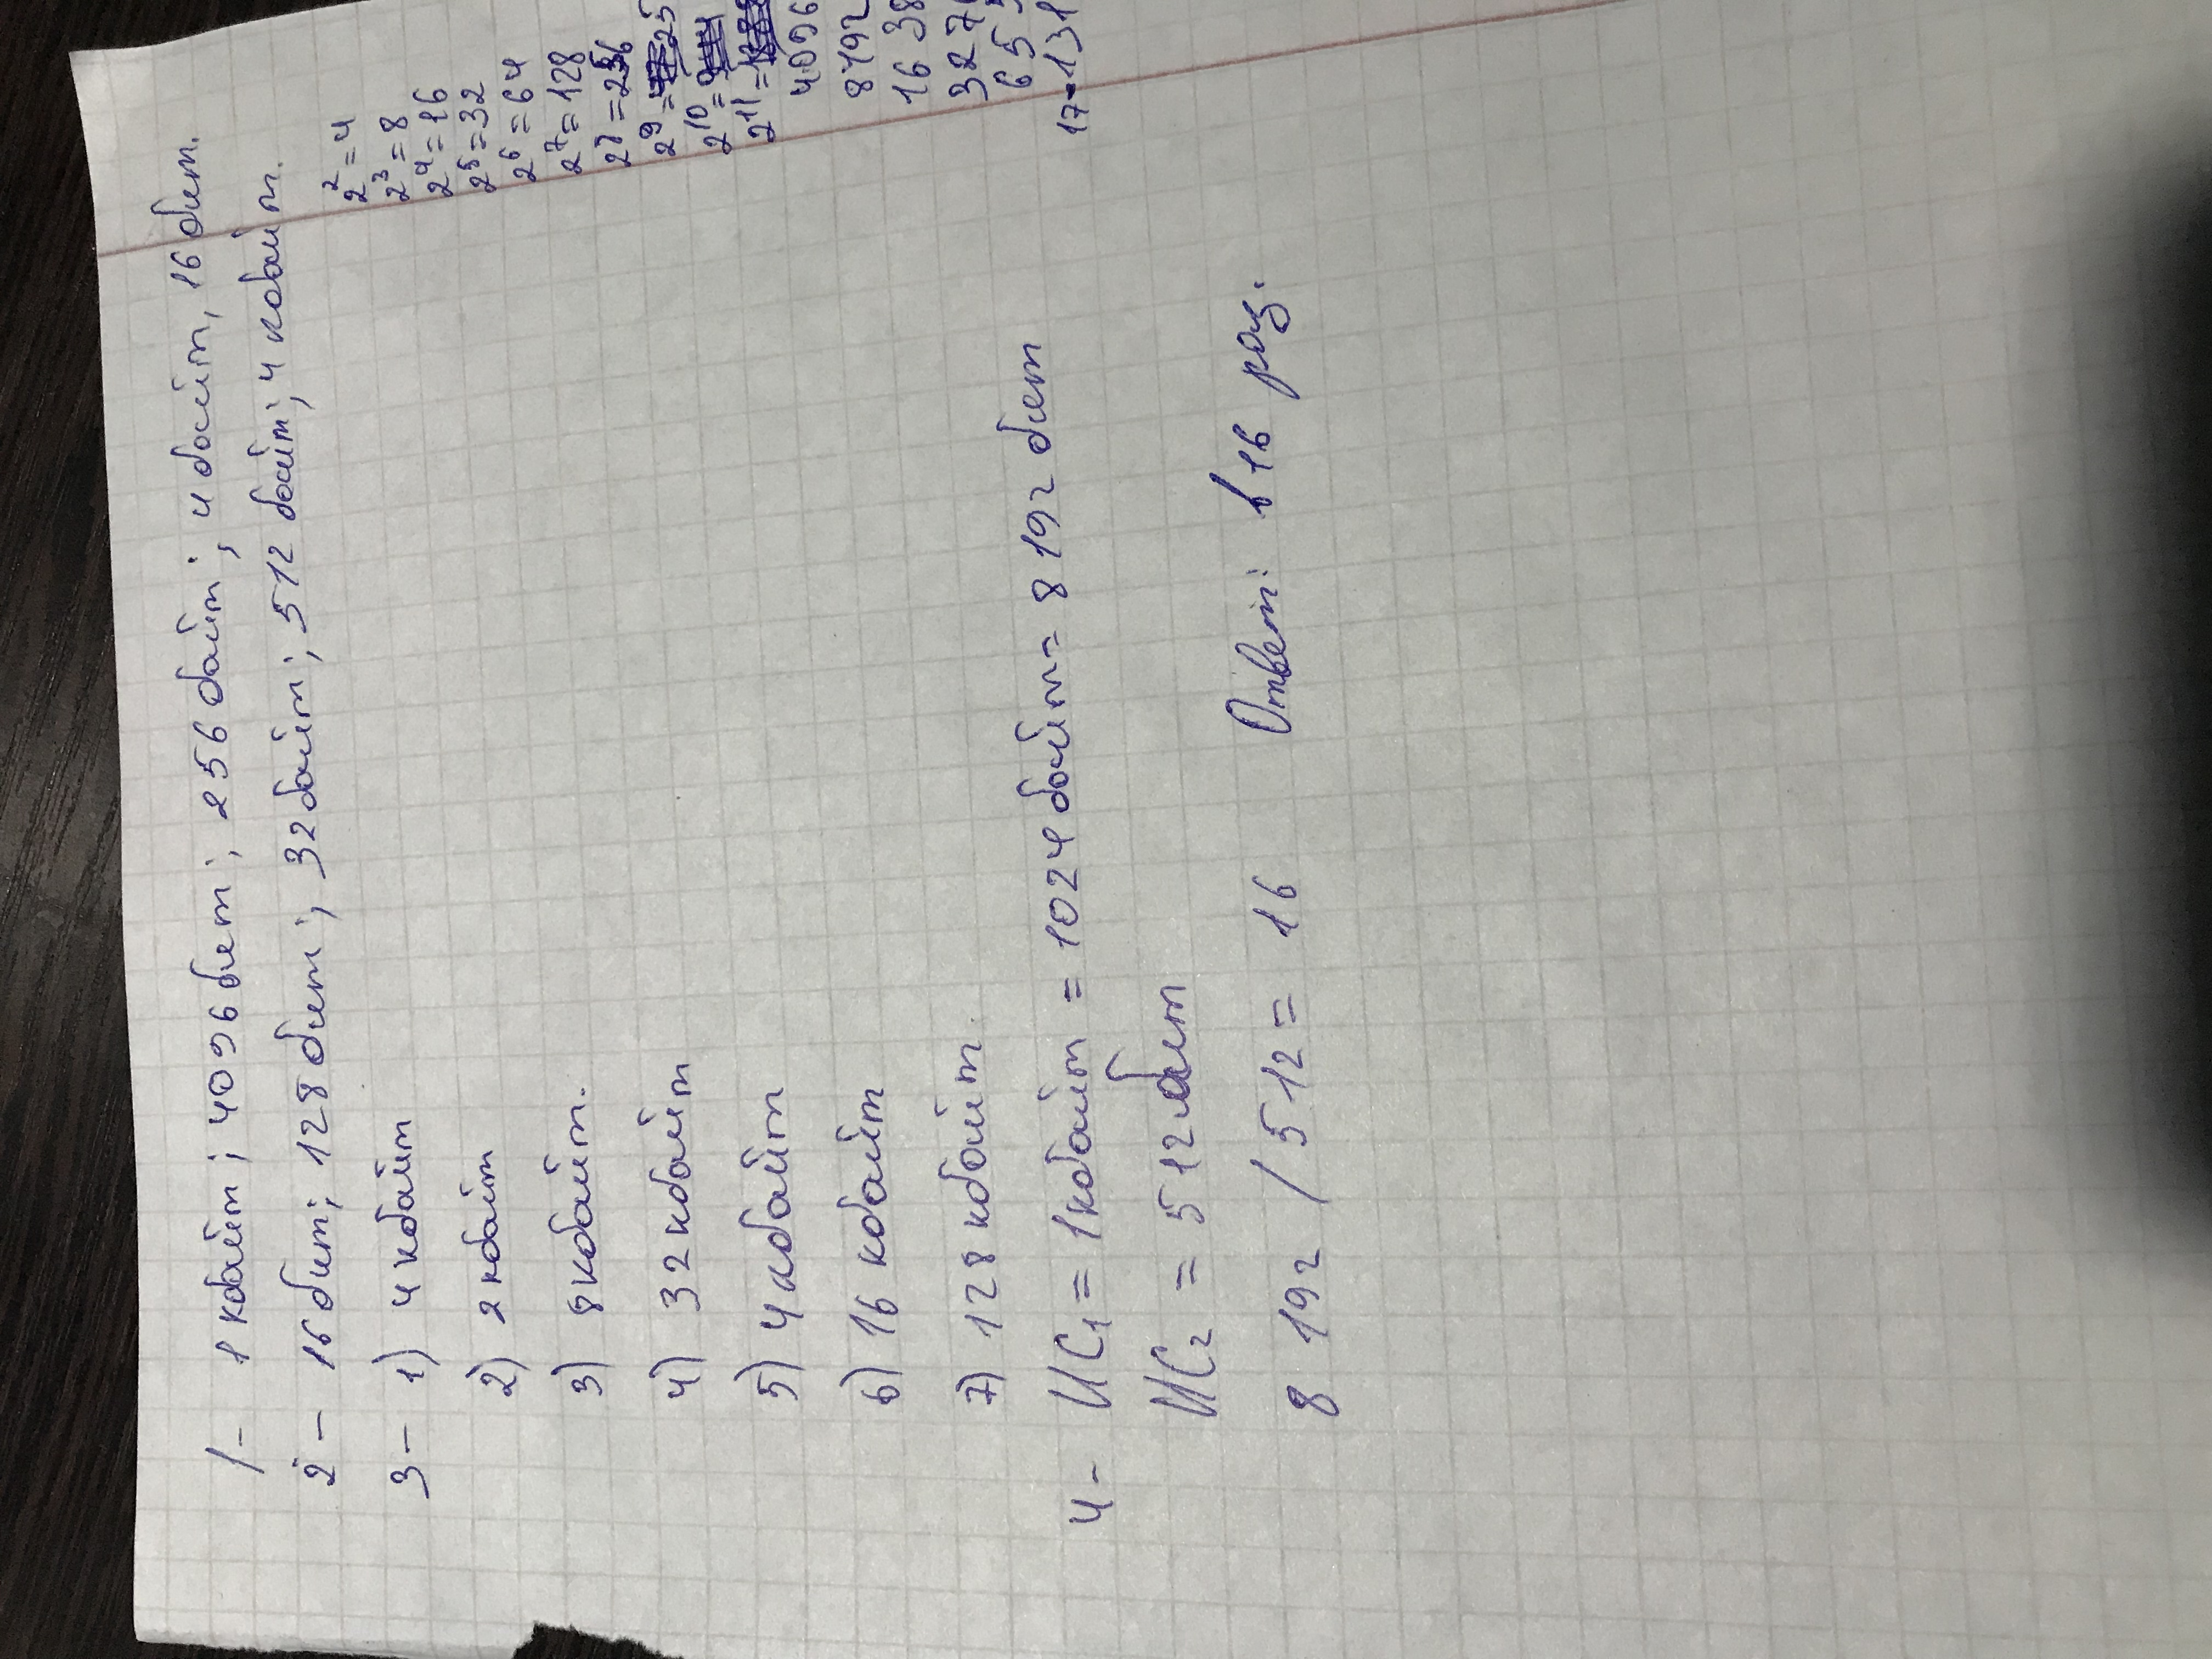 1- 1 кбайт; 4096 бит; 256 байт; 4 байт, 16 бит.
2- 16 бит; 128 бит; 32 байт; 512 байт; 4 кбайт.
3- 1) 4 кбайт
2) 2 кбайт
3) 8 кбайт.
4) 32 кбайт
5) 4 кбайт
6) 16 кбайт
7) 128 кбайт.
4- ИС₁ = 1 кбайт = 1024 байт = 8 192 бит
ИС₂ = 512 бит
8 192 / 512 = 16 Ответ: в 16 раз.
2² = 4
2³ = 8
2⁴ = 16
2⁵ = 32
2⁶ = 64
2⁷ = 128
2⁸ = 256
2⁹ =
2¹⁰ =
2¹¹ =
4096
8192
16 38
327
65
17 - 131